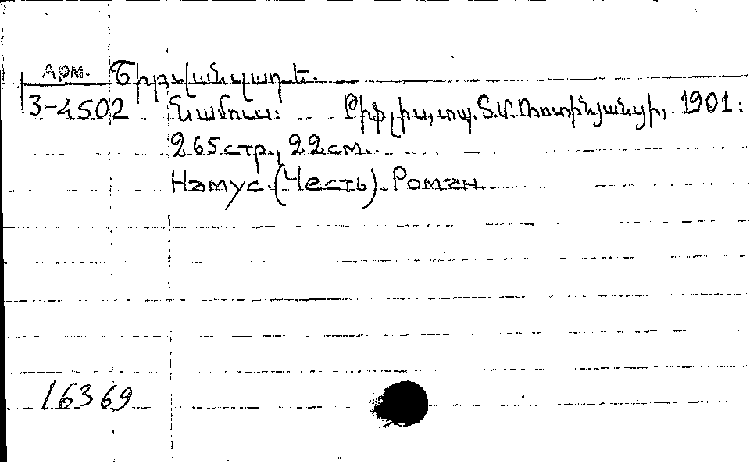 Арм. Շիրվանզադե.
3-4502 Նամուս: Թիֆլիս, տպ. Տ.Մ. Ռոտինյանցի, 1901:
265 стр., 22 см.
Намус (Честь). Роман
16369